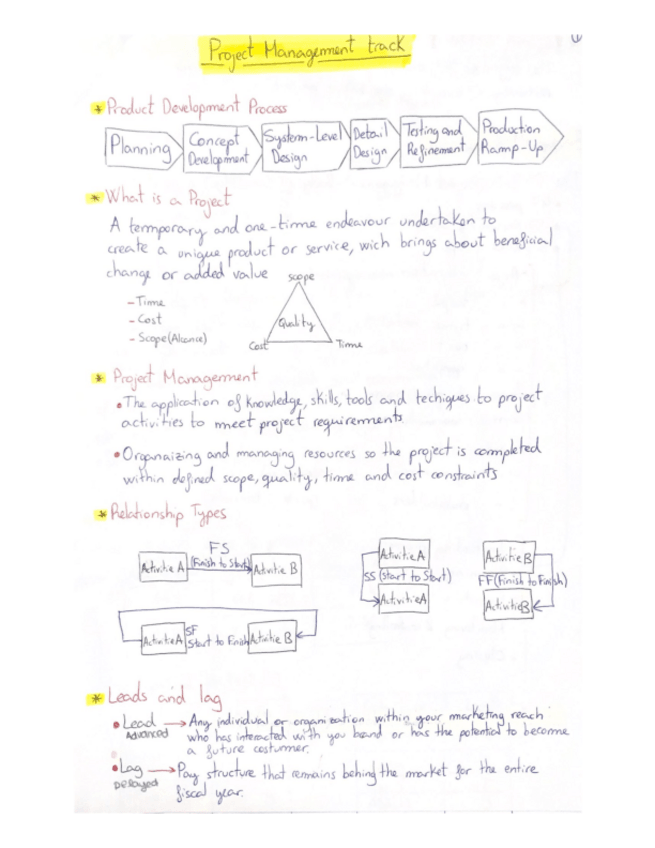 Project Management track
1
* Product Development Process
Planning
Concept Development
System-Level Design
Detail Design
Testing and Refinement
Production Ramp-Up
* What is a Project
A temporary and one-time endeavour undertaken to
create a unique product or service, wich brings about beneficial
change or added value
- Time
- Cost
- Scope (Alcance)
Scope
Quality
Cost
Time
* Project Management
• The application of knowledge, skills, tools and techiques to project
activities to meet project requirements
• Organaizing and managing resources so the project is completed
within defined scope, quality, time and cost constraints
* Relationship Types
FS
Activitie A
(Finish to Start)
Activitie B
Activitie A
SS (Start to Start)
Activitie A
Activitie B
FF (Finish to Finish)
Activitie B
Activitie A
SF
Start to Finish
Activitie B
* Leads and lag
• Lead → Any individual or organization within your marketing reach
Advanced
who has interacted with you band or has the potential to become
a future costummer.
• Lag → Pay structure that remains behing the market for the entire
Delayed
fiscal year.